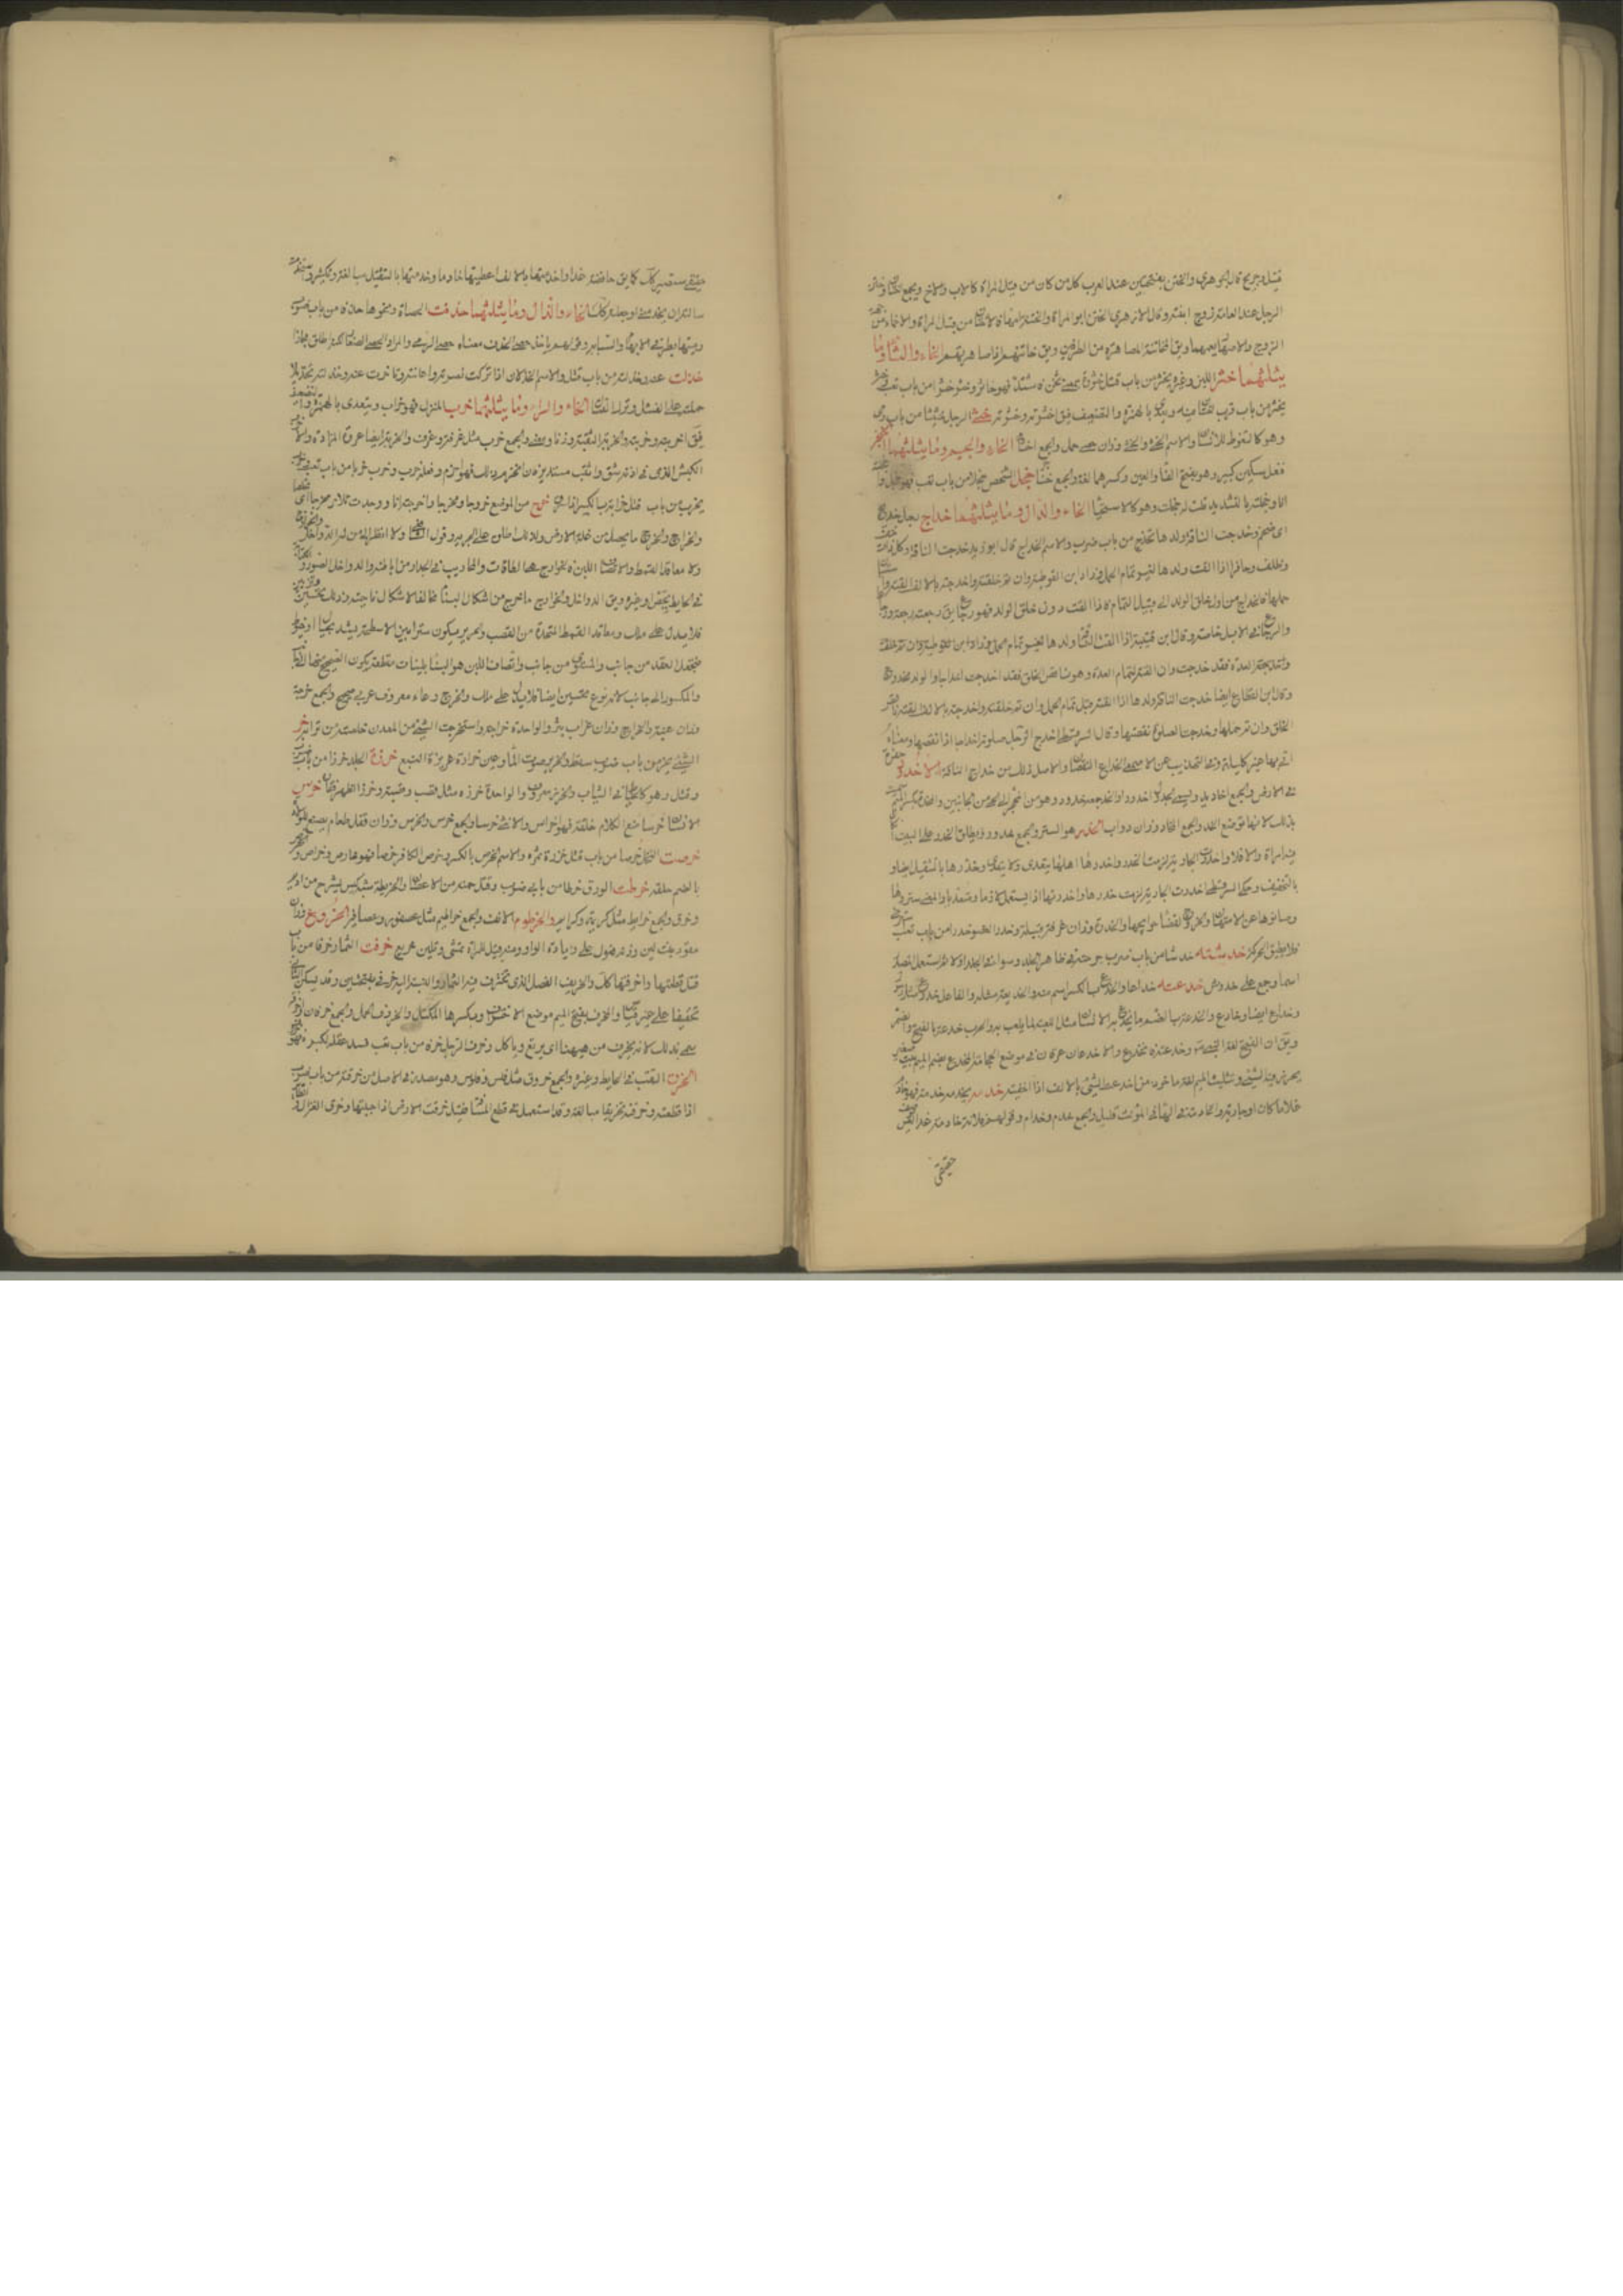 قيل وجريح قال الجوهري والختن بفتحتين عند العرب كل من كان من قبل المراة كالاب والاخ والجمع اختان وختن
الرجل عند العامة زوج ابنته وقال الازهري الختن ابو المراة والختنة امها فالاختان من قبل المراة والاحماء من
الزوج والاصهار يعمهما ويق المخاتنة المصاهرة من الطرفين ويق خاتنتهم اذا صاهرتهم الخاء والثاء وما
يثلثهما خثر اللبن وغيره يخثر من باب قتل خثورة بمعنى ثخن واشتد فهو خاثر وخثر خثرا من باب تعب
يخثر من باب قرب لغتان فيه ويتعدى بالهمزة والتضعيف فيق اخثرته وخثرته خثى الرجل يخثى من باب رمى
وهو كالتغوط للانسان والاسم الخثى وزان حمل والجمع اخثاء الخاء والجيم وما يثلثهما الخنجر
فنعل سكين كبير وهو بفتح الفاء والعين وكسرهما لغة والجمع خناجر خجل الشخص خجلا من باب تعب فهو خجل
انا وخجلته بالتشديد قلت له خجلت وهو كالاستحياء الخاء والدال وما يثلثهما خداج رجل خدلج
اى ضخم وخدجت الناقة ولدها تخدج من باب ضرب والاسم الخداج قال ابو زيد خدجت الناقة وكل ذات
وظلف وحافر اذا القت ولدها لغير تمام الحمل وزاد ابن القوطية وان تم خلقه واخدجته بالالف القته
حملها فالخداج من اول خلق الولد الى قبيل التمام فاذا القت دون خلق الولد فهو رجاع يق رجعته
والرجاع في الابل خاصة وقال ابن قتيبة اذا القت الناقة ولدها لغير تمام الحمل وزاد ابن القوطية وان تم خلقه
فقد خدجت وان القته لتمام العدة وهو ناقص الخلق فقد اخدجت اخداجا والولد مخدج
وقال ابن القطاع ايضا خدجت الناقة ولدها اذا القته قبل تمام الحمل وان تم خلقه واخدجته بالالف القته ناقص
الخلق وان تم حملها وخدج الصلوة نقصها وقال السرقسطي اخدج الرجل صلوته اخداجا اذا نقصها ومعناه
اتى بها غير كاملة وفي التهذيب عن الاصمعي الخداج النقصان واصل ذلك من خداج الناقة الاخدود حفرة
في الارض والجمع اخاديد ويسمى الجدول اخدودا والخد جمعه خدود وهو من المحجر الى اللحى من الجانبين والمخدة بكسر الميم
بذلك لانها توضع تحت الخد والجمع المخاد وزان دواب الخدر هو الستر والجمع خدور ويطلق الخدر على البيت
فيه امراة والا فلا واخدرت الجارية لزمت الخدر واخدرها اهلها يتعدى ولا يتعدى وخدرها بالتثقيل ايضا
بالتخفيف وحكى السرقسطي اخدرت الجارية لزمت خدرها واخدرتها اذا يستعمل لازما ومتعديا والمعنى ستروها
وصانوها عن الامتهان والخروج لقضاء حوايجها والخدرة وزان غرفة قبيلة وخدر العضو خدرا من باب تعب
فلا يطيق الحركة خدشته خدشا من باب ضرب جرحته في ظاهر الجلد وسواء دمي الجلد اولا ثم استعمل المصدر
اسما وجمع على خدوش خدعته خداعا والخدع بالكسر اسم منه والخديعة مثله والفاعل خدوع مثل رسول
وخداع ايضا وخادع والخدعة بالضم ما يخدع به الانسان مثل اللعبة لما يلعب به والحرب خدعة بالفتح والضم
ويق ان الفتح لغة النبي وخدعته فانخدع والاخدعان عرقان في موضع الحجامة والمخدع بضم الميم بيت صغير
يحرز فيه الشيء وتثليث الميم لغة ماخوذ من اخدعت الشيء بالالف اذا اخفيته خدمه يخدمه خدمة فهو خادم
غلاما كان او جارية والخادمة بالهاء في المؤنث قليل والجمع خدم وخدام وقولهم فلانة خادمة غدا ليس
حقيقي
حقيقي ستصير كذلك كما يق حائضة غدا واخدمتها بالالف اعطيتها خادما وخدمتها بالتثقيل مبالغة وتكثير واستخدمته
سالته ان يخدمني او جعلته كذلك الخاء والذال وما يثلثهما خذفت الحصاة ونحوها خذفا من باب ضرب
رميتها بطرفي الابهام والسبابة وقولهم ياخذ حصى الخذف معناه حصى الرمي والمراد الحصى الصغار لكنه اطلق مجازا
خذلته عنه وخذلته من باب قتل والاسم الخذلان اذا تركت نصرته واعانته وتاخرت عنه وخذلته تخذيلا
حملته على الفشل وترك القتال الخاء والراء وما يثلثهما خرب المنزل فهو خراب ويتعدى بالهمزة والتضعيف
فيق اخربته وخربته والخربة الثقبة وزنا ومعنى والجمع خرب مثل غرفة وغرف والخربة ايضا عروة المزادة والاخرب
الكبش الذي في اذنه شق او ثقب مستدير فان انخرم ذلك فهو اخرم وفعله خرب وخرب خربا من باب تعب
يخرب من باب قتل خرابة بالكسر اذا سرق خرج من الموضع خروجا ومخرجا واخرجته انا ووجدت للامر مخرجا اى مخلصا
والخراج والخرج ما يحصل من غلة الارض ولذلك اطلق على الجزية وقول الشافعي ولا انظر الى من له الدواخل والخوارج
ولا معاقد القمط ولا انصاف اللبن فالخوارج هي الطاقات والمحاريب في الجدار من باطنه والدواخل الصور
في الحايط بجص او غيره ويق الدواخل والخوارج ما خرج من اشكال البناء مخالفا لاشكال ناحيته وذلك تحسين
فلا يدل على ملك ومعاقد القمط المتخذة من القصب والحصر يكون سترا بين الاسطحة يشد بحبال او خيوط
فتجعل العقد من جانب والمستوى من جانب وانصاف اللبن هو البناء بلبنات مقطعة يكون الصحيح منها الى جانب
والمكسور الى جانب لانه نوع تحسين ايضا فلا يدل على ملك والخرج وعاء معروف عربي صحيح والجمع خرجة
وزان عنبة والخراج وزان غراب بثر والواحدة خراجة واستخرجت الشيء من المعدن خلصته من ترابه خر
الشيء يخر من باب ضرب سقط والخرير صوت الماء وعين خرارة غزيرة النبع خرزت الجلد خرزا من باب ضرب
وقتل وهو كالخياطة في الثياب والخرز معروف والواحدة خرزة مثل قصب وقصبة وخرز الظهر فقاره خرس
الانسان خرسا منع الكلام خلقة فهو اخرس والانثى خرساء والجمع خرس والخرس وزان قفل طعام يصنع للولادة
خرصت النخل خرصا من باب قتل حزرت تمره والاسم الخرص بالكسر وخرص الكافر خرصا فهو خارص وخراص والخرص
بالضم حلقة خرطت الورق خرطا من بابي ضرب وقتل حتته من الاغصان والخريطة شبه كيس يشرج من اديم
وخرق والجمع خرايط مثل كريمة وكرايم والخرطوم الانف والجمع خراطيم مثل عصفور وعصافير الخروع وزان
مقود نبت لين وزنه فعول على زيادة الواو ومنه قيل للمراة تمشي وتلين خريع خرفت الثمار خرفا من باب
قتل قطعتها واخترفتها كذلك والخريف الفصل الذي تخترف فيه الثمار والنسبة اليه خرفي بفتحتين وقد يسكن الثاني
تخفيفا على غير قياس والمخرف بفتح الميم موضع الاختراف وبكسرها المكتل والخروف الحمل والجمع خرفان واخرفة
سمي بذلك لانه يخرف من ههنا وههنا اى يرتع وياكل وخرف الرجل خرفا من باب تعب فسد عقله لكبره فهو خرف
الخرق الثقب في الحايط وغيره والجمع خروق مثل فلس وفلوس وهو مصدر في الاصل من خرقته من باب ضرب
اذا قطعته وخرقته تخريقا مبالغة وقد استعمل في قطع المسافة فقيل خرقت الارض اذا جبتها وخرق الغزال